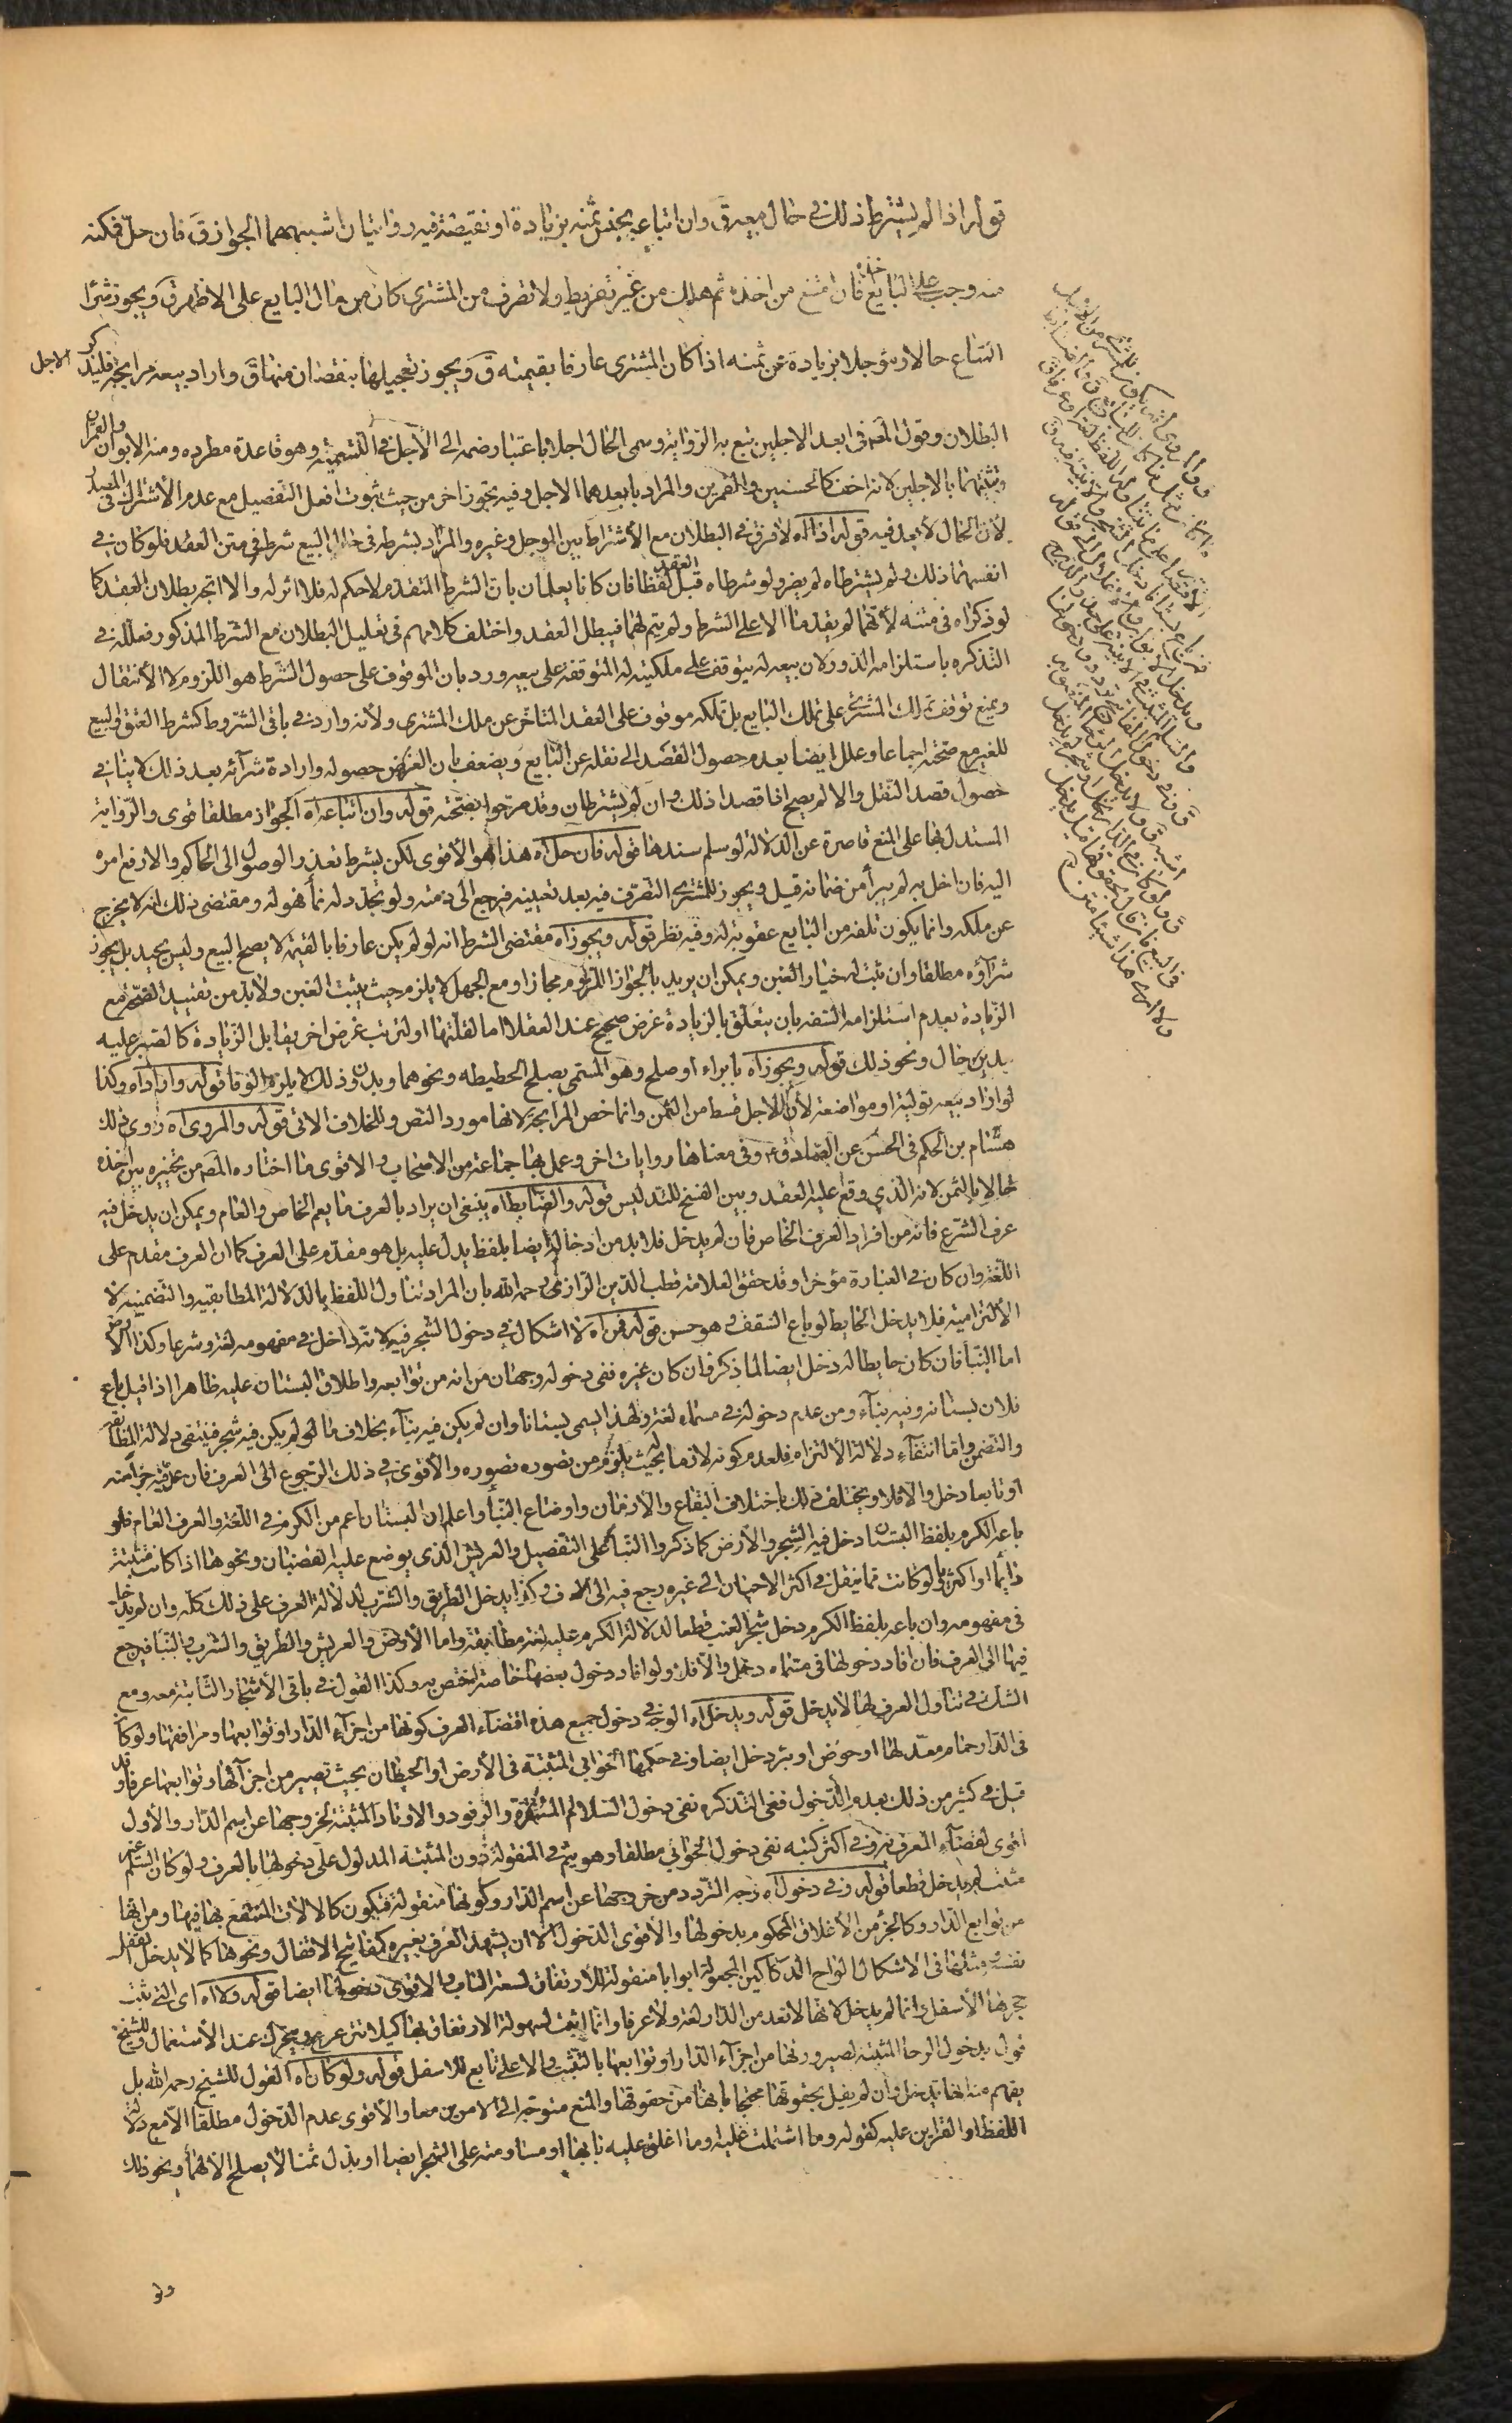 قوله اذا لم يشترط ذلك في حال بيعه ق وان ابتاعه بجنس ثمنه بزيادة او نقيصة فيه روايتان اشبههما الجواز ق فان حل فمكنه
منه وجب على البايع اخذه فان امتنع من اخذه ثم هلك من غير تفريط ولا تصرف من المشتري كان من مال البايع على الاظهر ق ويجوز شراء
المتاع حالا ومؤجلا بزيادة عن ثمنه اذا كان المشتري عارفا بقيمته ق ويجوز تعجيلها بنقصان منها ق واراد بيعه مرابحة فليذكر الاجل
البطلان وقول المصنف في ابعد الاجلين تبع به الرواية وسمى الحال اجلا باعتبار ضمه الى الأجل في التسمية وهو قاعدة مطردة ومنه الابوان والقمران
وتثنيتهما بالاجلين لانه اخف كالحسنين والقمرين والمراد بابعدهما الاجل وفيه تجوز اخر من حيث ثبوت افعل التفضيل مع عدم الاشتراك في المصدر
لأن الحال لا بعد فيه قوله اذا اه لا فرق في البطلان مع الأشتراط بين الموجل وغيره والمراد بشرطه في حال البيع شرطه في متن العقد فلو كان في
انفسهما ذلك ولم يشترطاه لم يضر ولو شرطاه قبل العقد لفظا فان كانا يعلمان بان الشرط المتقدم لا حكم له فلا اثر له والا اتجه بطلان العقد كما
لو ذكراه في متنه لأنهما لم يقدما الا على الشرط ولم يتم لهما فيبطل العقد واختلف كلامهم في تعليل البطلان مع الشرط المذكور فعلله في
التذكره باستلزامه الدور لان بيعه له يتوقف على ملكيته له المتوقفة على بيعه ورد بان الموقوف على حصول الشرط هو اللزوم لا الأنتقال
ويمنع توقف تملك المشتري على تملك البايع بل تملكه موقوف على العقد المتاخر عن ملك المشتري ولأنه وارد في باقي الشروط كشرط العتق والبيع
للغير مع صحته اجماعا وعلل ايضا بعدم حصول القصد الى نقله عن البايع ويضعف بان الغرض حصوله وارادة شرآئه بعد ذلك لا ينافي
حصول قصد النقل والا لم يصح اذا قصدا ذلك وان لم يشترطاه وقد صرحوا بصحته قوله وان ابتاعه اه الجواز مطلقا قوى والرواية
المستدل بها على المنع قاصرة عن الدلالة لو سلم سندها قوله فان حل اه هذا هو الأقوى لكن بشرط تعذر الوصول الى الحاكم والا رفع امره
اليه فان اخل به لم يبرأ من ضمانه قيل ويجوز للمشتري التصرف فيه بعد تعيينه فيرجع الى ذمته ولو تجدد له نمأ فهو له ومقتضى ذلك انه لا يخرج
عن ملكه وانما يكون تلفه من البايع عقوبة له وفيه نظر قوله ويجوز اه مقتضى الشرط انه لو لم يكن عارفا بالقيمة لا يصح البيع وليس بجيد بل يجوز
شرآؤه مطلقا وان ثبت له خيار الغبن ويمكن ان يريد بالجواز اللزوم مجازا ومع الجهل لا يلزم حيث يثبت الغبن ولا بد من تقييد الصحة مع
الزيادة بعدم استلزامه السفه بان يتعلق بالزيادة غرض صحيح عند العقلا اما لقلتها او لترتب غرض اخر يقابل الزيادة كالصبر عليه
بدين حال ونحو ذلك قوله ويجوز اه بابراء او صلح وهو المسمى بصلح الحطيطه ونحوهما وبدون ذلك لا يلزم الوفا قوله واراد اه وكذا
لو اراد بيعه تولية او مواضعة لأن للاجل قسط من الثمن وانما خص المرابحة لانها مورد النص وللخلاف الاتي قوله والمروى اه روى ذلك
هشام بن الحكم في الحسن عن الصادق ع وفي معناها روايات اخر وعمل بها جماعة من الاصحاب والاقوى ما اختاره المصنف من تخييره بين اخذه
حالا بالثمن لانه الذي وقع عليه العقد وبين الفسخ للتدليس قوله والضابط اه ينبغى ان يراد بالعرف ما يعم الخاص والعام ويمكن ان يدخل فيه
عرف الشرع فانه من افراد العرف الخاص فان لم يدخل فلا بد من ادخاله ايضا بلفظ يدل عليه بل هو مقدم على العرف كما ان العرف مقدم على
اللغة وان كان في العبارة مؤخرا وقد حقق العلامة قطب الدين الرازي رحمه الله بان المراد تناول اللفظ بالدلالة المطابقية والتضمنية لا
الألتزامية فلا يدخل الحايط لو باع السقف وهو حسن قوله فمن اه لا اشكال في دخول الشجر فيه لانه داخل في مفهومه لغة وشرعا وكذا الأرض
اما البنآ فان كان حايطا له دخل ايضا لما ذكر فان كان غيره ففي دخوله وجهان من انه من توابعه واطلاق البستان عليه ظاهرا اذا قيل باع
فلان بستانه وفيه بنآء ومن عدم دخوله في مسماه لغة ولهذا يسمى بستانا وان لم يكن فيه بنآء بخلاف ما لو لم يكن فيه شجر فينتفي دلالة المطابقة
والتضمن واما انتفآء دلالة الألتزام فلعدم كونه لازما بحيث يلزم من تصوره تصوره والأقوى في ذلك الرجوع الى العرف فان عد فيه جزأ منه
او تابعا دخل والا فلا ويختلف ذلك باختلاف البقاع والازمان واوضاع البنأ واعلم ان البستان اعم من الكرم في اللغة والعرف العام فلو
باعه الكرم بلفظ البستان دخل فيه الشجر والأرض كما ذكروا البنآ على التفصيل والعريش الذي يوضع عليه القضبان ونحوها اذا كانت مثبتة
دائما او اكثريا ولو كانت مما ينقل في اكثر الاحيان الى غيره رجع فيه الى العرف وكذا يدخل الطريق والشرب لدلالة العرف على ذلك كله وان لم يدخل
في مفهومه وان باعه بلفظ الكرم دخل شجر العنب قطعا لدلالة الكرم عليه لغة مطابقة واما الأرض والعريش والطريق والشرب والبنآ فيرجع
فيها الى العرف فان افاد دخولها في مسماه دخل والا فلا ولو افاد دخول بعضها خاصة اختص به وكذا القول في باقي الأشجار الثابتة معه ومع
الشك في تناول العرف لها لا يدخل قوله ويدخل اه الوجه في دخول جميع هذه اقتضآء العرف كونها من اجزآء الدار او توابعها ومرافقها ولو كان
في الدار حمام معد لها او حوض او بئر دخل ايضا وفي حكمها الخوابي المثبتة في الأرض او الحيطان بحيث تصير من اجزآئها وتوابعها عرفا وقد
قيل في كثير من ذلك بعدم الدخول ففي التذكره نفى دخول السلالم المسمرة والرفود والاوتاد المثبتة لخروجها عن اسم الدار والأول
اقوى لقضآء العرف به وفي اكثر كتبه نفى دخول الخوابي مطلقا وهو يتم في المنقولة دون المثبتة المدلول على دخولها بالعرف ولو كان السلم غير
مثبت لم يدخل قطعا قوله وفي دخول اه وجه التردد من خروجها عن اسم الدار وكونها منقولة فيكون كالالات المنتفع بها فيها ومن انها
من توابع الدار وكالجزء من الأغلاق المحكوم بدخولها والأقوى الدخول الا ان يشهد العرف بغيره كمفاتيح الاقفال ونحوها كما لا يدخل القفل
نفسه ومثلها في الاشكال الواح الدكاكين المجعولة ابوابا منقولة للارتفاق لسعة الباب والاقوى دخولها ايضا قوله ولا اه اى التي يثبت
حجرها الأسفل وانما لم يدخل لانها لا تعد من الدار لغة ولا عرفا وانما اثبت لسهولة الارتفاق بها كيلا تتزعزع وتتحرك عند الأستعمال وللشيخ
قول بدخول الرحا المثبتة لصيرورتها من اجزآء الدار او توابعها بالتثبت والاعلى تابع للاسفل قوله ولو كان اه القول للشيخ رحمه الله بل
يفهم منه انها تدخل وان لم يقل بحقوقها محتجا بانها من حقوقها والمنع متوجه الى الامرين معا والأقوى عدم الدخول مطلقا الا مع دلالة
اللفظ او القراين عليه كقوله وما اشتملت عليه وما اغلق عليه بابها او مساومته على الشجر ايضا او بذل ثمنا لا يصلح الا لهما ونحو ذلك
ولو